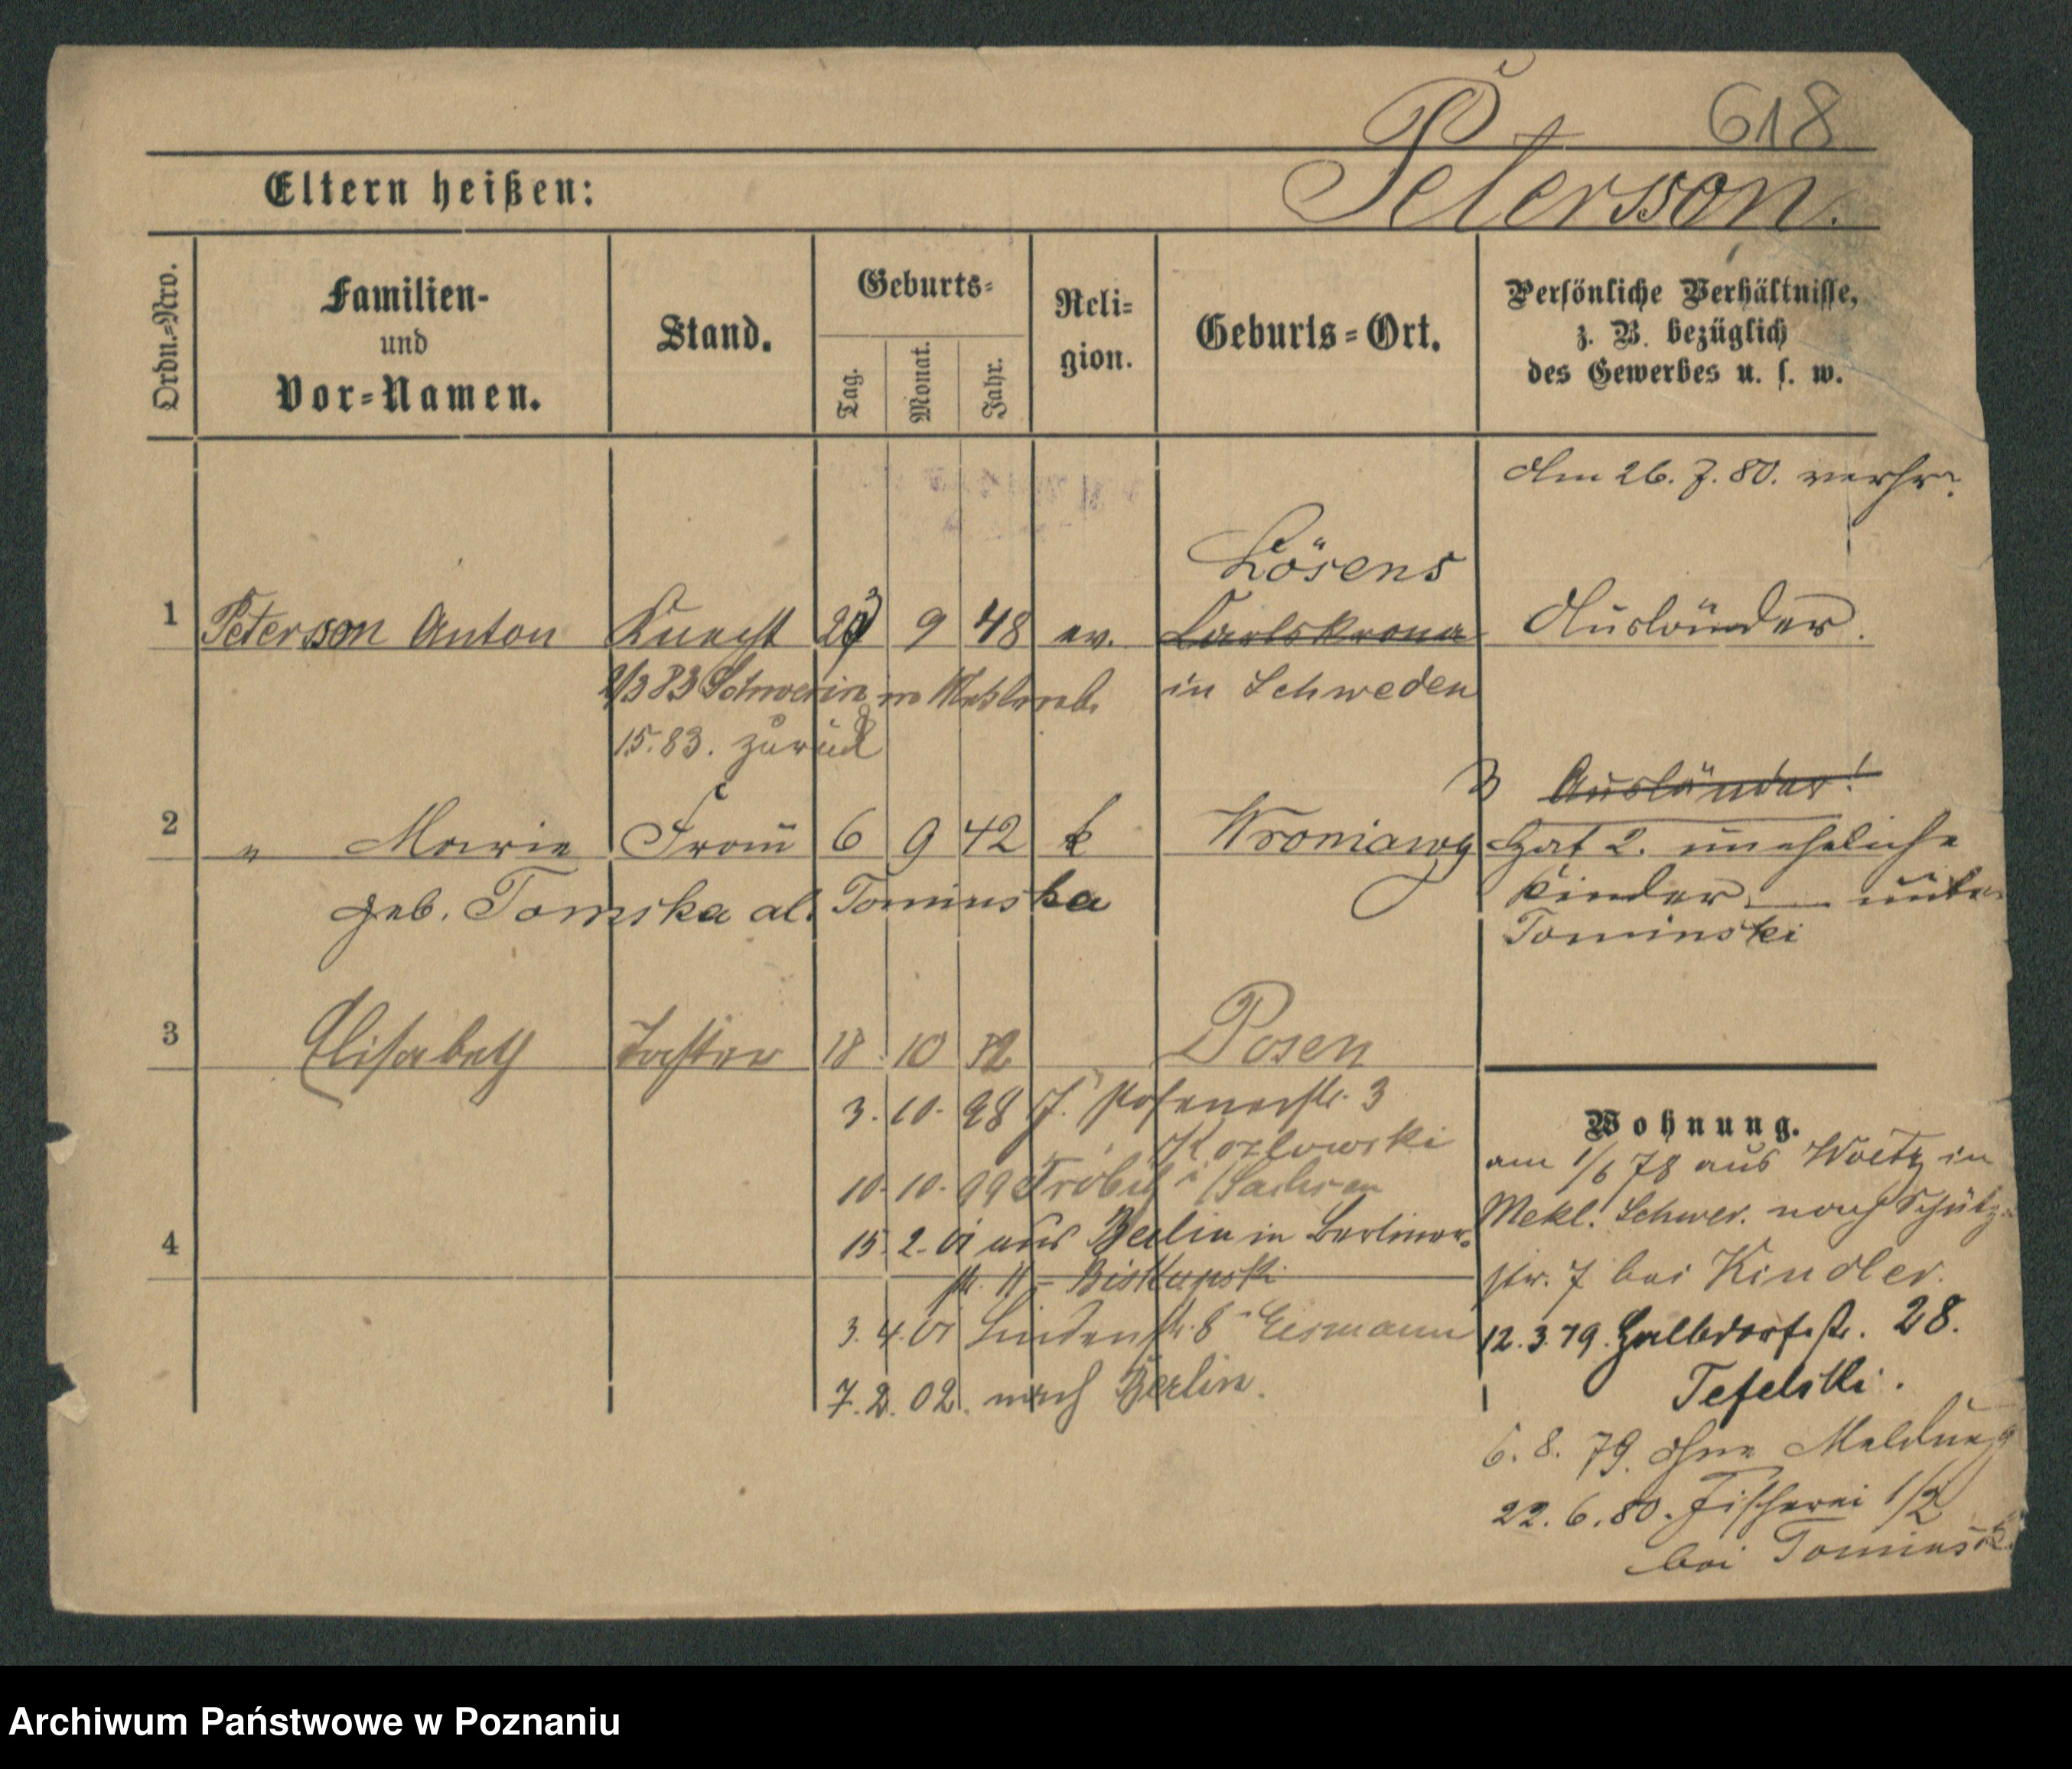 618
Petersson.
Eltern heißen:
Ordn.=Nro.
Familien- und Vor=Namen.
Stand.
Geburts=
Tag. Monat. Jahr.
Reli=gion.
Geburts=Ort.
Persönliche Verhältnisse, z. B. bezüglich des Gewerbes u. s. w.
Am 26. 7. 80. verhr.
Lösens
1 Petersson Anton Knecht 9 48 ev. Carlskrona Ausländer.
83 Schwerin in
in Schweden
15. 83. zurück
Ausländer!
2 " Marie Frau 6 9 42 k Wroniawy Hat 2. uneheliche
geb. Tomska al. Tominska
Kinder
Tominski
3 Elisabeth Tochter 18 10 82 Posen
Wohnung.
3. 10. 98 J. Posenerstr. 3
Kozlowski
am 1/6 78 aus Woetz in
10. 10. 99 Sachsen
Mekl. Schwer. nach Schütz
4
15. 2. 01 aus Berlin in Berliner
str. 11 - Biskupski
str. 7 bei Kindler.
3. 4. 01 Lindenstr. 8 - Eismann
12. 3. 79. Halbdorfstr. 28.
7. 2. 02. nach Berlin.
Tefelski.
6. 8. 79. ohne Meldung
22. 6. 80. Fischerei 1/2
bei Tominski
Archiwum Państwowe w Poznaniu